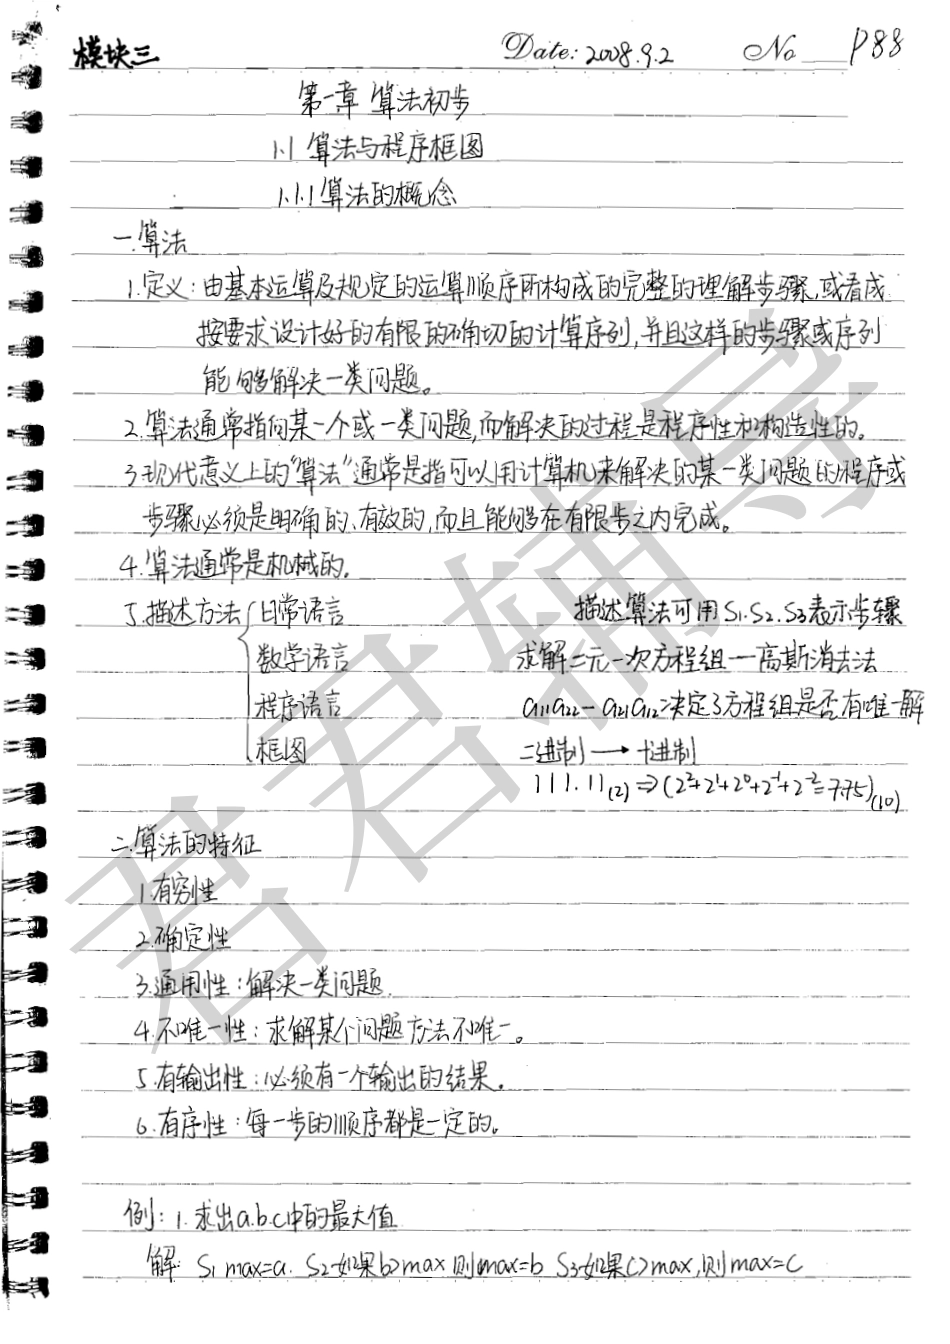 模块三
Date: 2008.9.2 No P88
第一章 算法初步
1.1 算法与程序框图
1.1.1 算法的概念
一.算法
1.定义:由基本运算及规定的运算顺序所构成的完整的理解步骤,或看成
按要求设计好的有限的确切的计算序列,并且这样的步骤或序列
能够解决一类问题。
2.算法通常指向某一个或一类问题,而解决的过程是程序性和构造性的。
3.现代意义上的“算法”通常是指可以用计算机来解决的某一类问题的程序或
步骤必须是明确的、有效的,而且能够在有限步之内完成。
4.算法通常是机械的。
5.描述方法{日常语言
数学语言
程序语言
框图
描述算法可用S1.S2.S3表示步骤
求解二元一次方程组一高斯消去法
a11a22-a21a12决定了方程组是否有唯一解
二进制→十进制
111.11(2)⇒(2²+2¹+2⁰+2⁻¹+2⁻²=7.75)(10)
二.算法的特征
1.有穷性
2.确定性
3.通用性:解决一类问题.
4.不唯一性:求解某个问题方法不唯一。
5.有输出性:必须有一个输出的结果。
6.有序性:每一步的顺序都是一定的。
例:1.求出a.b.c中的最大值
解: S1 max=a. S2如果b>max,则max=b S3如果c>max,则max=c
君君辅导